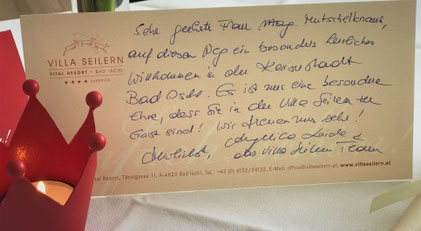 VILLA SEILERN
VITAL RESORT · BAD ISCHL
★★★★ SUPERIOR
Sehr geehrte Frau Mag. Mutschelknaus,
auf diesem Weg ein besonders herzliches
Willkommen in der Kaiserstadt
Bad Ischl. Es ist uns eine besondere
Ehre, dass Sie in der Villa Seilern zu
Gast sind! Wir freuen uns sehr!
Herzlichst, Angelika &
das Villa Seilern Team
Resort, Tänzlgasse 11, A-4820 Bad Ischl, Tel. +43 (0) 6132/24132, E-Mail: office@villaseilern.at, www.villaseilern.at